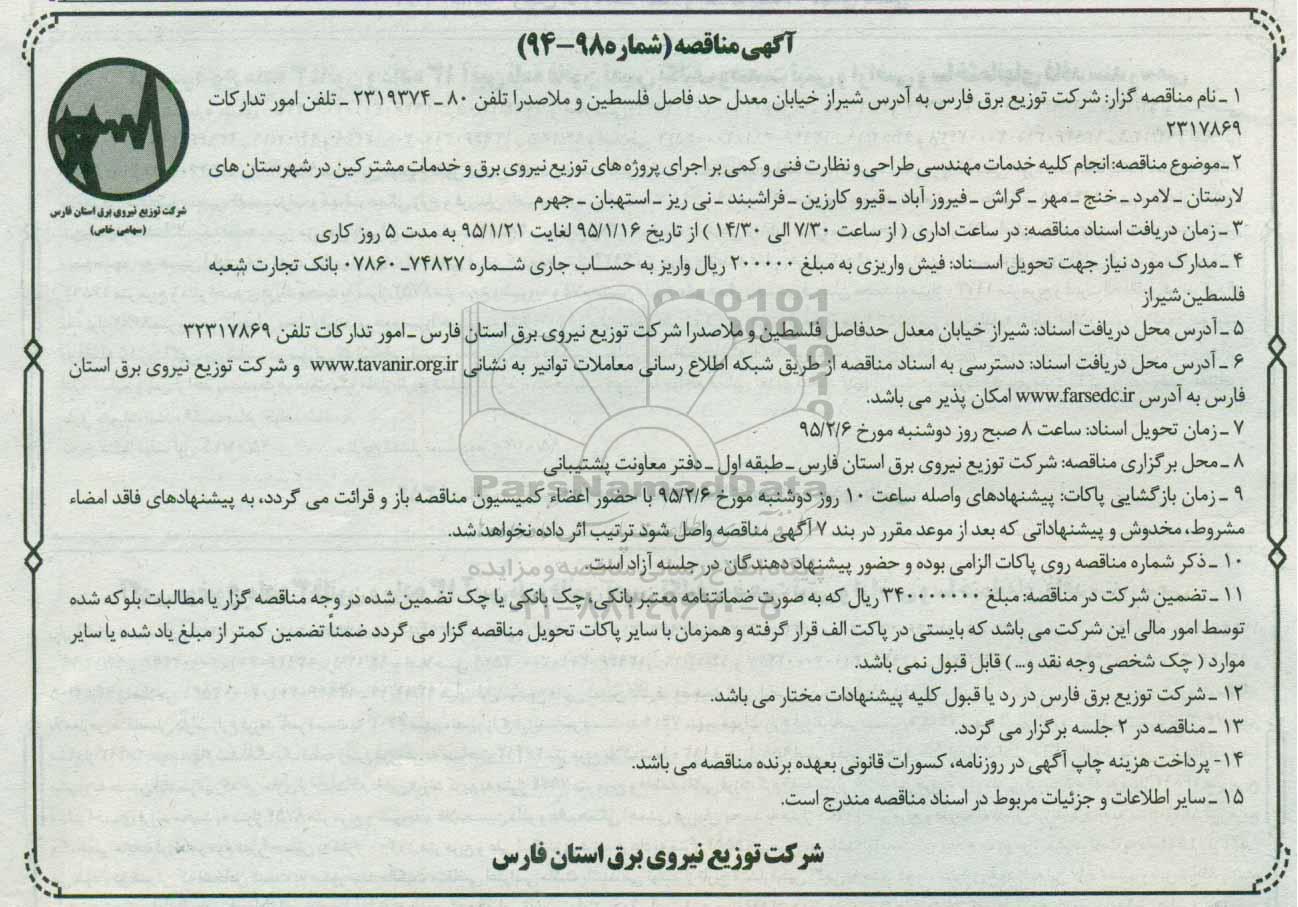 آگهی مناقصه (شماره ۹۸-۹۴)
۱ ـ نام مناقصه گزار: شرکت توزیع برق فارس به آدرس شیراز خیابان معدل حد فاصل فلسطین و ملاصدرا تلفن ۸۰ ـ ۲۳۱۹۳۷۴ ـ تلفن امور تدارکات
۲۳۱۷۸۶۹
۲ـ موضوع مناقصه: انجام کلیه خدمات مهندسی طراحی و نظارت فنی و کمی بر اجرای پروژه های توزیع نیروی برق و خدمات مشترکین در شهرستان های
لارستان ـ لامرد ـ خنج ـ مهر ـ گراش ـ فیروز آباد ـ قیرو کارزین ـ فراشبند ـ نی ریز ـ استهبان ـ جهرم
۳ ـ زمان دریافت اسناد مناقصه: در ساعت اداری ( از ساعت ۷/۳۰ الی ۱۴/۳۰ ) از تاریخ ۹۵/۱/۱۶ لغایت ۹۵/۱/۲۱ به مدت ۵ روز کاری
۴ ـ مدارک مورد نیاز جهت تحویل اسناد: فیش واریزی به مبلغ ۲۰۰۰۰۰ ریال واریز به حساب جاری شماره ۷۴۸۲۷ـ ۰۷۸۶۰ بانک تجارت شعبه
فلسطین شیراز
۵ ـ آدرس محل دریافت اسناد: شیراز خیابان معدل حدفاصل فلسطین و ملاصدرا شرکت توزیع نیروی برق استان فارس ـ امور تدارکات تلفن ۳۲۳۱۷۸۶۹
۶ ـ آدرس محل دریافت اسناد: دسترسی به اسناد مناقصه از طریق شبکه اطلاع رسانی معاملات توانیر به نشانی www.tavanir.org.ir و شرکت توزیع نیروی برق استان
فارس به آدرس www.farsedc.ir امکان پذیر می باشد.
۷ ـ زمان تحویل اسناد: ساعت ۸ صبح روز دوشنبه مورخ ۹۵/۲/۶
۸ ـ محل برگزاری مناقصه: شرکت توزیع نیروی برق استان فارس ـ طبقه اول ـ دفتر معاونت پشتیبانی
۹ ـ زمان بازگشایی پاکات: پیشنهادهای واصله ساعت ۱۰ روز دوشنبه مورخ ۹۵/۲/۶ با حضور اعضاء کمیسیون مناقصه باز و قرائت می گردد، به پیشنهادهای فاقد امضاء
مشروط، مخدوش و پیشنهاداتی که بعد از موعد مقرر در بند ۷ آگهی مناقصه واصل شود ترتیب اثر داده نخواهد شد.
۱۰ ـ ذکر شماره مناقصه روی پاکات الزامی بوده و حضور پیشنهاد دهندگان در جلسه آزاد است.
۱۱ ـ تضمین شرکت در مناقصه: مبلغ ۳۴۰۰۰۰۰۰۰ ریال که به صورت ضمانتنامه معتبر بانکی، چک بانکی یا چک تضمین شده در وجه مناقصه گزار یا مطالبات بلوکه شده
توسط امور مالی این شرکت می باشد که بایستی در پاکت الف قرار گرفته و همزمان با سایر پاکات تحویل مناقصه گزار می گردد ضمناً تضمین کمتر از مبلغ یاد شده یا سایر
موارد ( چک شخصی وجه نقد و... ) قابل قبول نمی باشد.
۱۲ ـ شرکت توزیع برق فارس در رد یا قبول کلیه پیشنهادات مختار می باشد.
۱۳ ـ مناقصه در ۲ جلسه برگزار می گردد.
۱۴- پرداخت هزینه چاپ آگهی در روزنامه، کسورات قانونی بعهده برنده مناقصه می باشد.
۱۵ ـ سایر اطلاعات و جزئیات مربوط در اسناد مناقصه مندرج است.
شرکت توزیع نیروی برق استان فارس
شرکت توزیع نیروی برق استان فارس
(سهامی خاص)
ParsNamadData
پایگاه اطلاع رسانی مناقصه و مزایده
۰۲۱-۸۸۳۴۹۶۷۰-۵